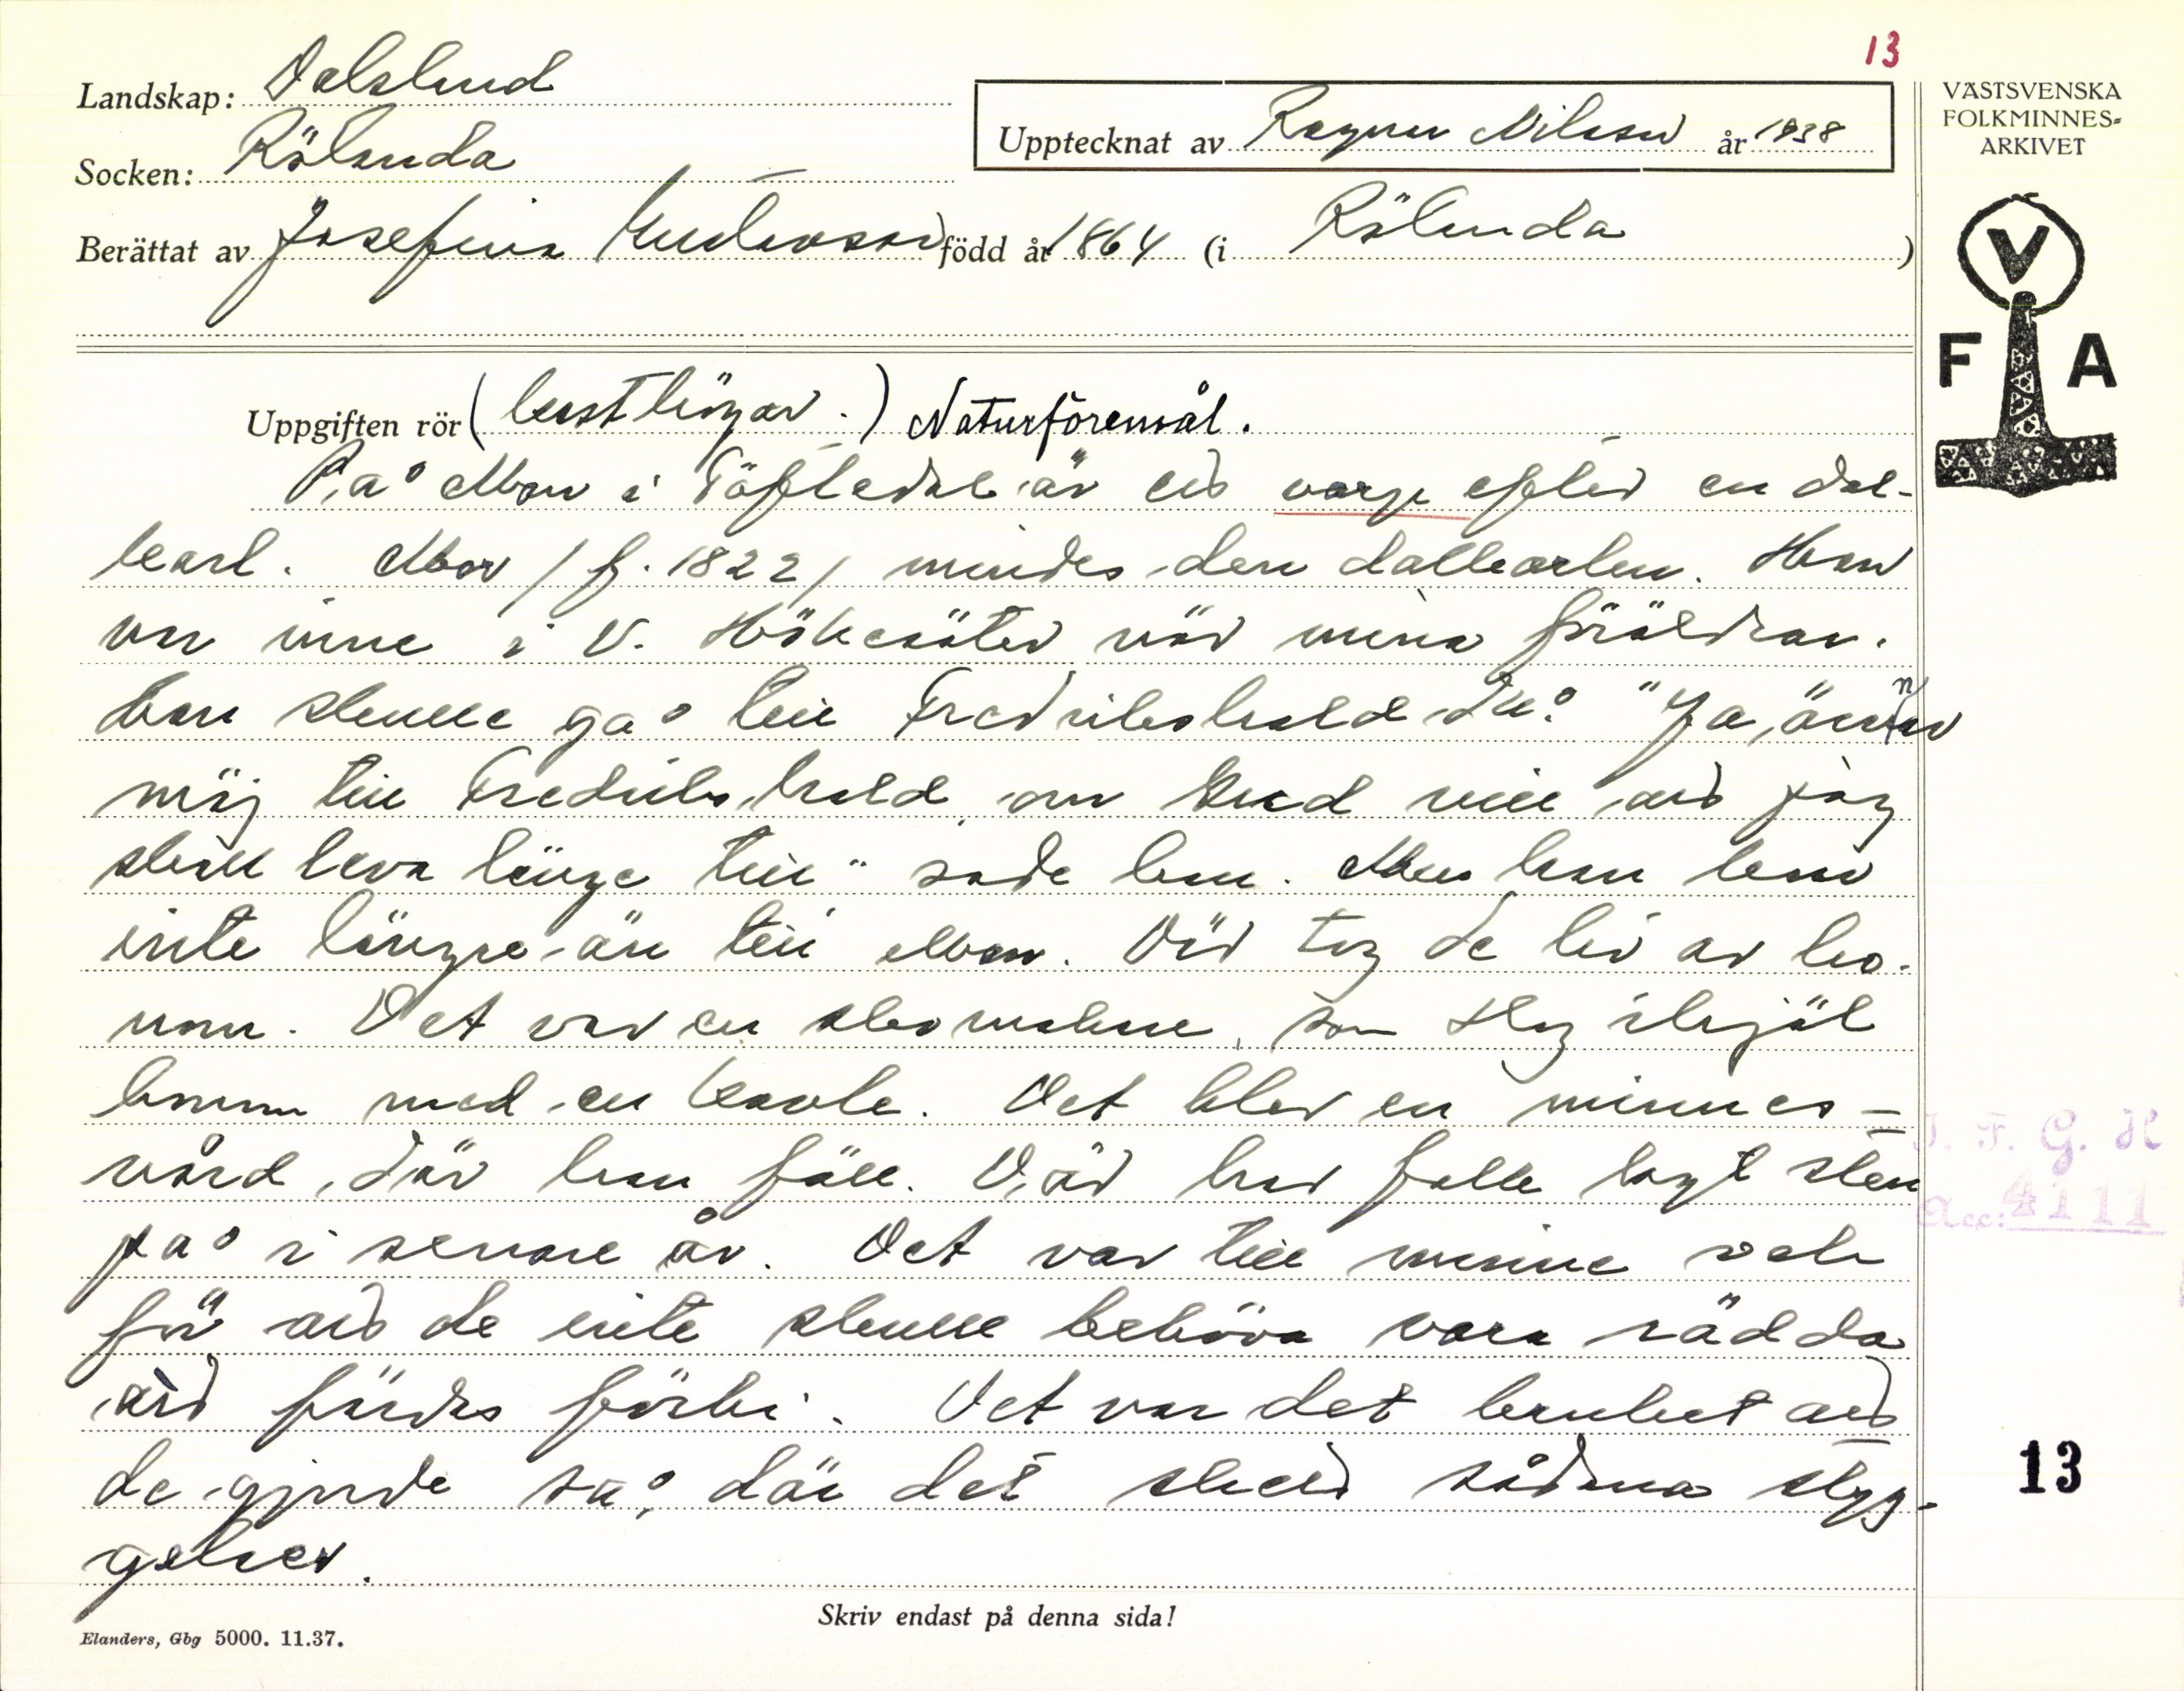 13
Landskap: Dalsland
Socken: Rölanda
Upptecknat av Ragnar Nilsson år 1938
VÄSTSVENSKA
FOLKMINNES-
ARKIVET
Berättat av Josefina Gustavsson född år 1864 (i Rölanda)
V
F A
Uppgiften rör (kasthögar.) Naturföremål.
På Mon i Töftedal är ett varp efter en dal-
karl. Mor /f. 1822/ mindes den dalkarlen. Han
var inne i V. Hökesäter när mina föräldrar.
Han skulle gå till Fredrikshald då. "Ja, än
mäj till Fredrikshald, om Gud vill att jag
skall leva länge till" sade han. Men han kom
inte längre än till Mon. Där tog de liv av ho-
nom. Det var en skomakare, som slog ihjäl
honom med en kavle. Det blev en minnes-
vård, där han föll. Där har folk lagt sten
på i senare år. Det var till minne och
för att de inte skulle behöva vara rädda
att färdas förbi. Det var det bruket att
de gjorde så, där det skett sådana styg-
gelser.
J. F. G. H
Acc: 4111
13
Skriv endast på denna sida!
Elanders, Gbg 5000. 11.37.